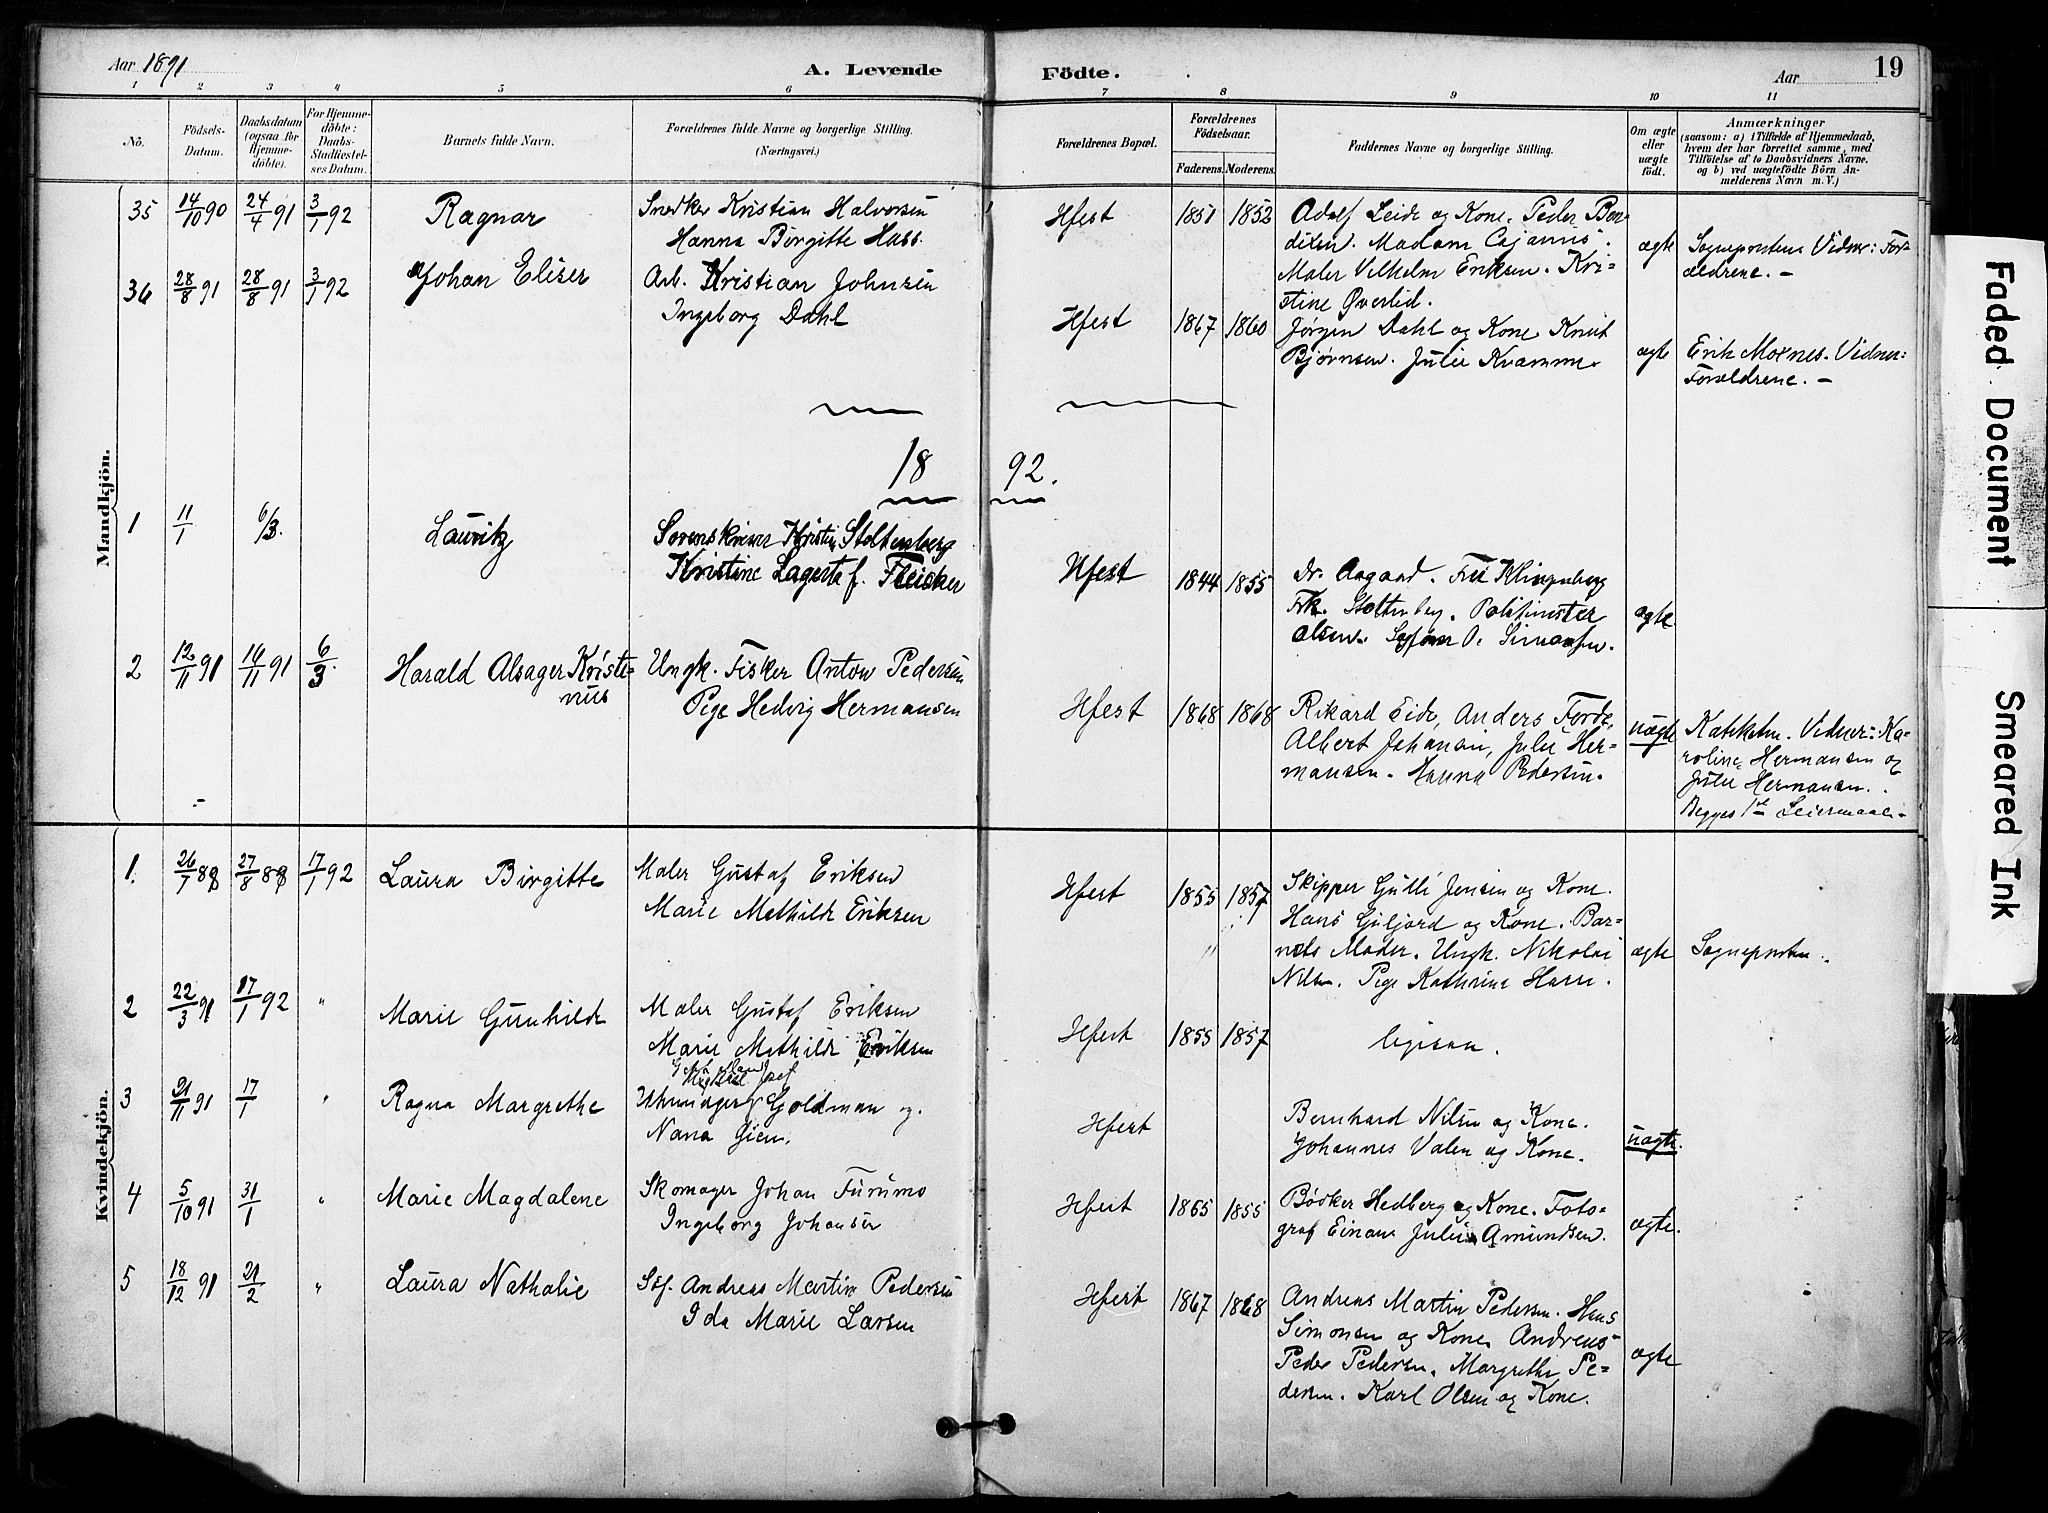 Aar 1891
A. Levende
Födte.
Aar
19
1 2 3 4 5 6 7 8 9 10 11
No.
Födsels-
Datum.
Daabsdatum
(ogsaa for
Hjemme-
döbte).
For Hjemme-
döbte:
Daabs-
Stadfæstel-
ses Datum.
Barnets fulde Navn.
Forældrenes fulde Navne og borgerlige Stilling.
(Næringsvei.)
Forældrenes Bopæl.
Forældrenes
Födselsaar.
Faderens. Moderens.
Faddernes Navne og borgerlige Stilling.
Om ægte
eller
uægte
födt.
Anmærkninger
(saasom: a) i Tilfælde af Hjemmedaab,
hvem der har forrettet samme, med
Tilföielse af to Daabsvidners Navne.
og b) ved uægtefödte Börn An-
melderens Navn m. V.)
Mandkjön.
35 14/10 90 24/4 91 3/1 92 Ragnar
Snedker Kristian Halvorsen
Hanna Birgitte Hass.
Hfest 1851 1852
Adolf Leide og Kone. Peder Ben-
dixen. Madam Cajanus.
Maler Vilhelm Eriksen. Kri-
stine Øverlid.
ægte
Sognepresten Vidner: For-
ældrene. -
36 28/8 91 28/8 91 3/1 92 Johan Eliser
Arb. Kristian Johnsen
Ingeborg Dahl
Hfest 1867 1860
Jørgen Dahl og Kone. Knut
Bjørnsen. Julie Kvamme.
ægte
Erik Moxnes. Vidner:
Forældrene. -
1892.
1 11/1 6/3. Lauritz
Sorenskriver Stoltenberg
Kristine Lagerta f. Fleischer
Hfest 1844 1855
Dr. Aagaard. Klingenberg
Frk. Stoltenberg. Politimester
Olsen. O. Simonsen.
ægte
2 12/11 91 16/11 91 6/3. Harald Alsager Kristi-
nus
Ungk. Fisker Anton Pedersen
Pige Hedvig Hermansen
Hfest 1868 1868
Rikard Eide, Anders Forde,
Albert Johansen, Julie Her-
mansen. Hanna Pedersen.
uægte
Kateketen. Vidner: Ka-
roline Hermansen og
Julie Hermansen.
Begges 1st Leiermaal.
Kvindekjön.
1. 26/7 88 27/8 88 17/1 92 Laura Birgitte
Maler Gustaf Eriksen
Marie Mathilde Eriksen
Hfest 1855 1857
Skipper Gulli Jensen og Kone.
Hans Guljord og Kone. Bar-
nets Moder. Ungk. Nikolai
Nilsen. Pige Kathrine Harr.
ægte
Sognepresten.
2 22/3 91 17/1 92 " Marie Gunhilde
Maler Gustaf Eriksen
Marie Mathilde Eriksen
Hfest 1855 1857
ligesaa.
3 21/11 91 17/1 " Ragna Margrethe
Josef
Uhrmager Goldman og
Nana Giæn.
Hfest
Bernhard Nilsen og Kone.
Johannes Valen og Kone.
uægte.
4 5/10 91 31/1 " Marie Magdalene
Skomager Johan Furumo
Ingeborg Johansen
Hfest 1865 1855
Bødker Hedberg og Kone. Foto-
graf Einar Julie Amundsen.
ægte.
5 18/12 91 21/2 " Laura Nathalie
Søf. Andreas Martin Pedersen
Ida Marie Larsen
Hfest 1867 1868
Andreas Martin Pedersen. Hans
Simonsen og Kone. Andreas
Peder Pedersen. Margrethe Pe-
dersen. Karl Olsen og Kone.
ægte
Faded Document
Smeared Ink